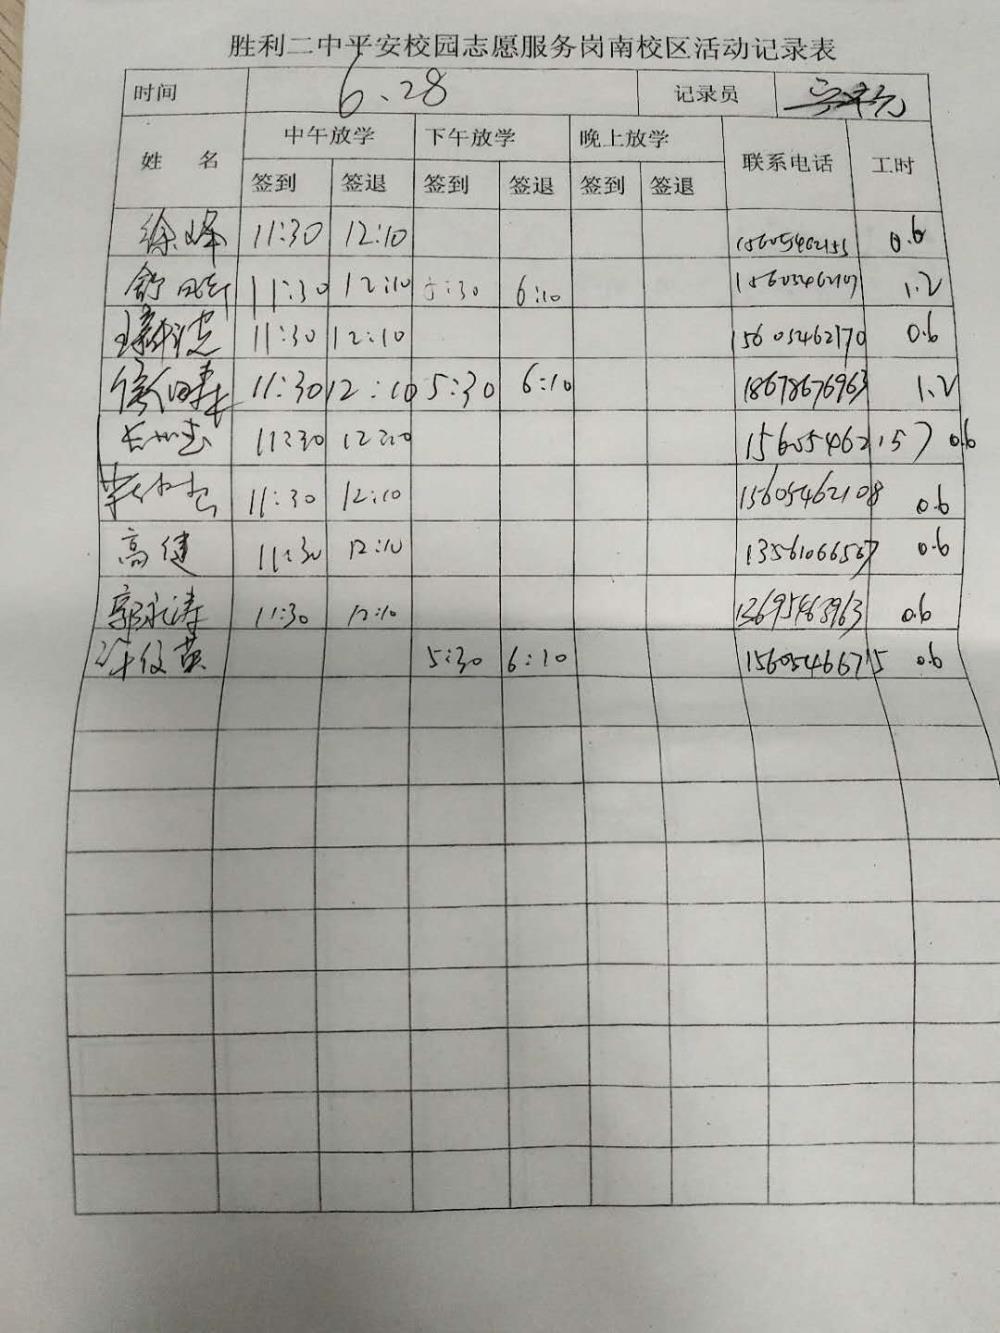 胜利二中平安校园志愿服务岗南校区活动记录表
时间 6、28 记录员
姓 名 中午放学 下午放学 晚上放学 联系电话 工时
签到 签退 签到 签退 签到 签退
徐峰 11:30 12:10 15605462155 0.6
舒 11:30 12:10 5:30 6:10 15605462107 1.2
11:30 12:10 15605462170 0.6
11:30 12:10 5:30 6:10 18678676963 1.2
11:30 12:10 15605462157 0.6
11:30 12:10 15605462108 0.6
高健 11:30 12:10 13561066567 0.6
郭永涛 11:30 12:10 13695463963 0.6
5:30 6:10 15605466715 0.6